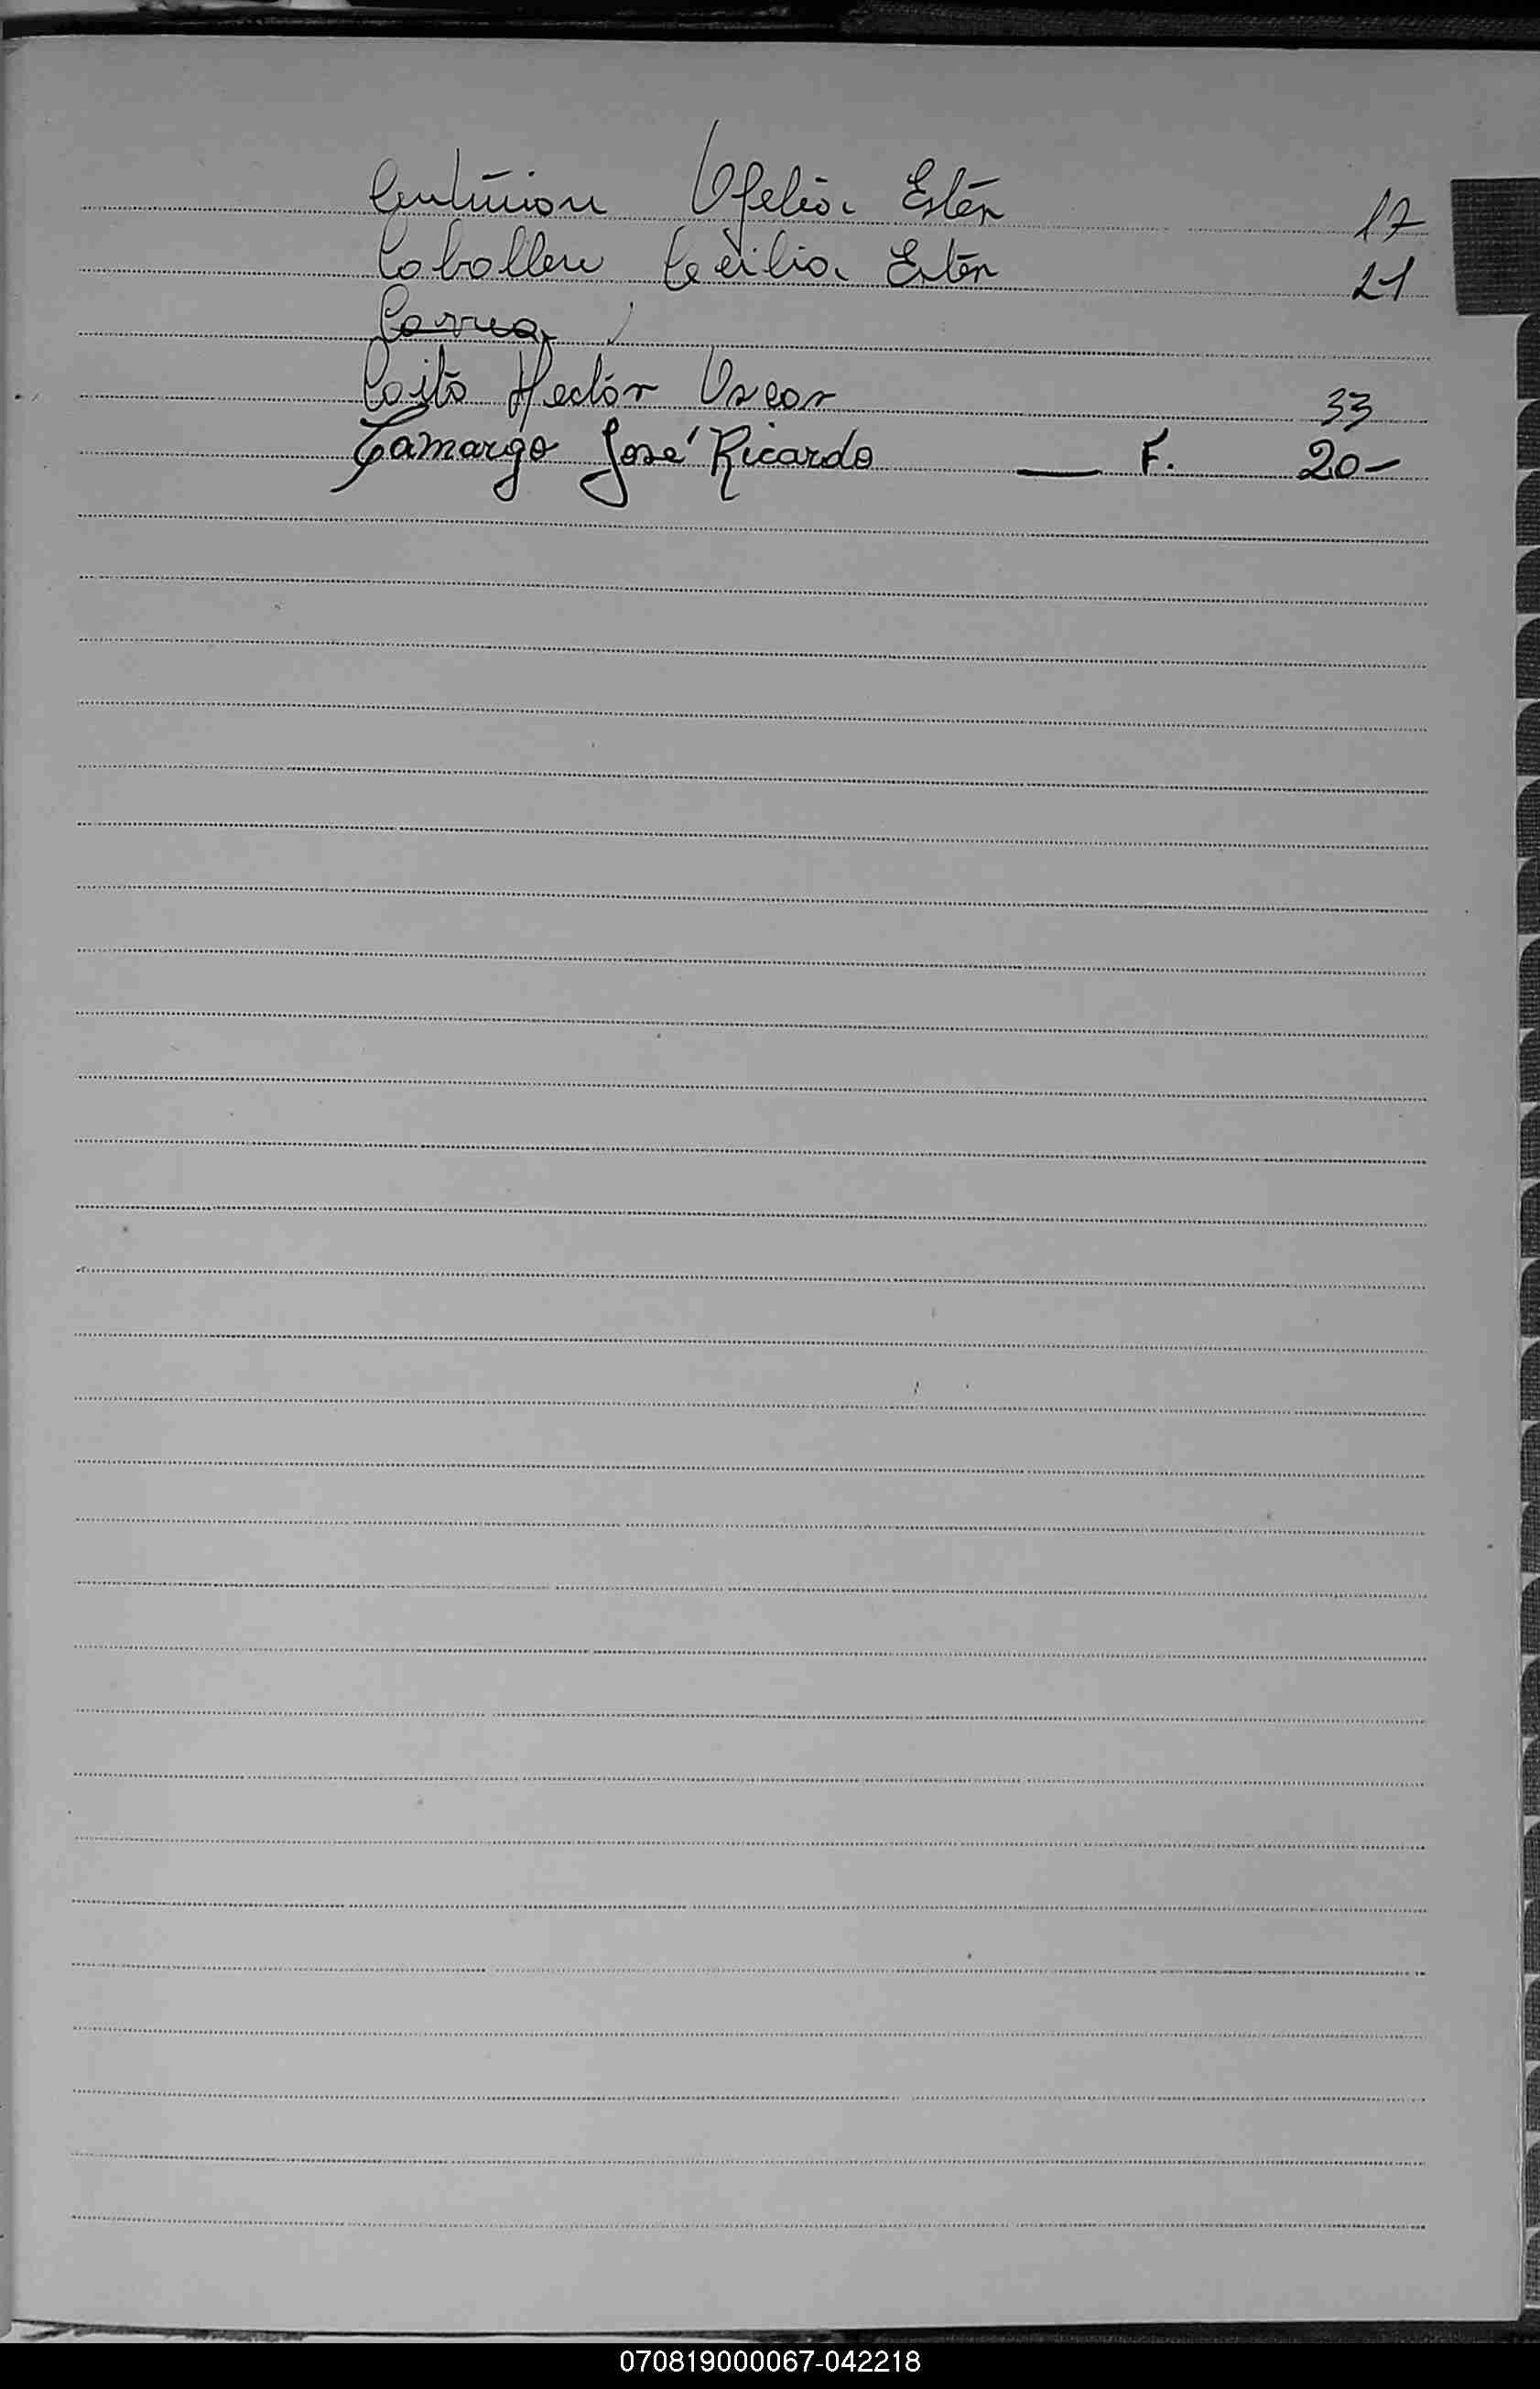 Centurion Ofelia Ester 17
Caballero Cecilia Ester 21
Correa
Coito Hector Oscar 33
Camargo José Ricardo — F. 20-
070819000067-042218